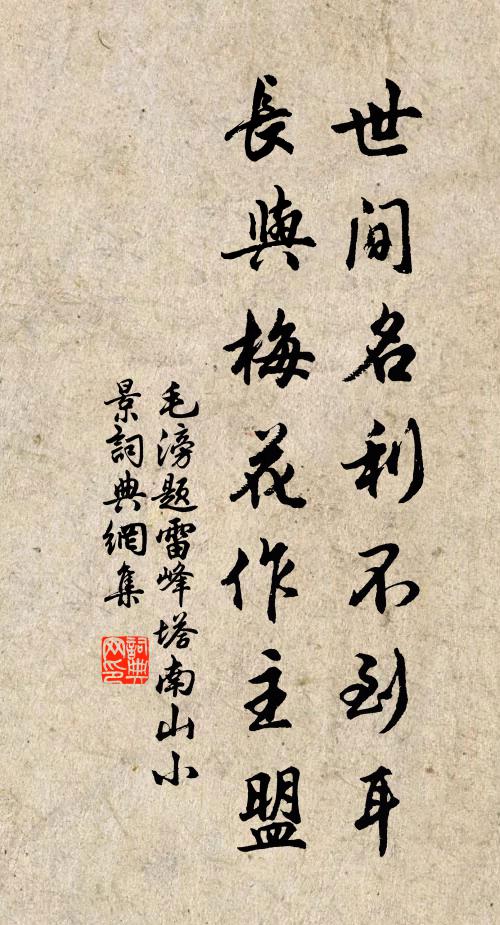 世间名利不到耳
長與梅花作主盟
毛滂題雷峰塔南山小
景詞典網集
詞典
网印